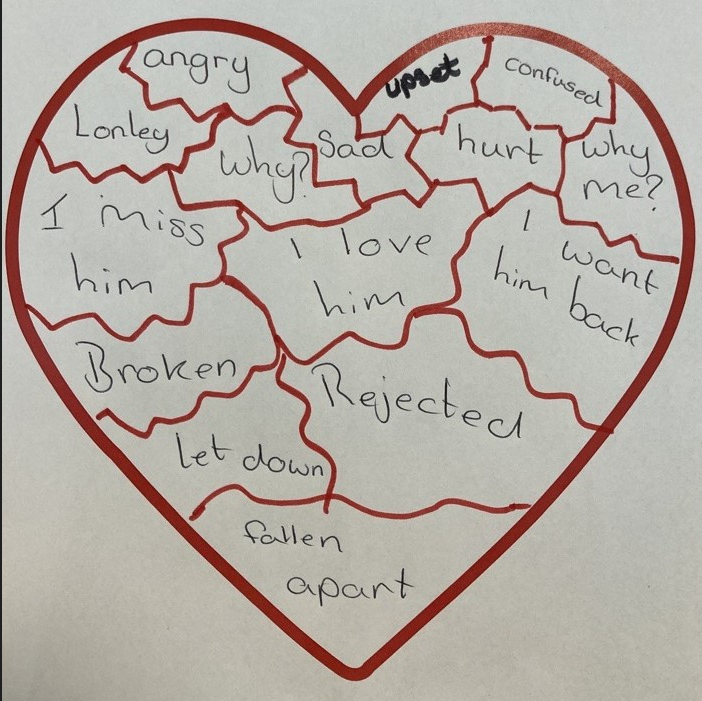 angry
upset
confused
Lonley
why?
Sad
hurt
why
me?
I miss
him
I love
him
I want
him back
Broken
Rejected
let down
fallen
apart